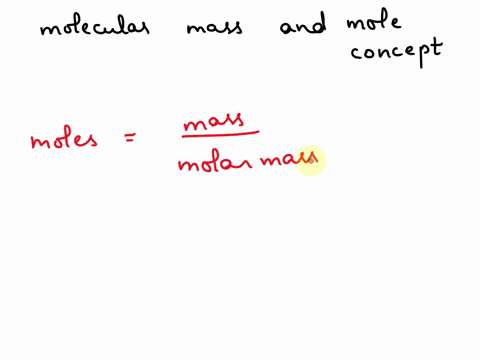 molecular mass and mole
concept
moles = mass
molar mass